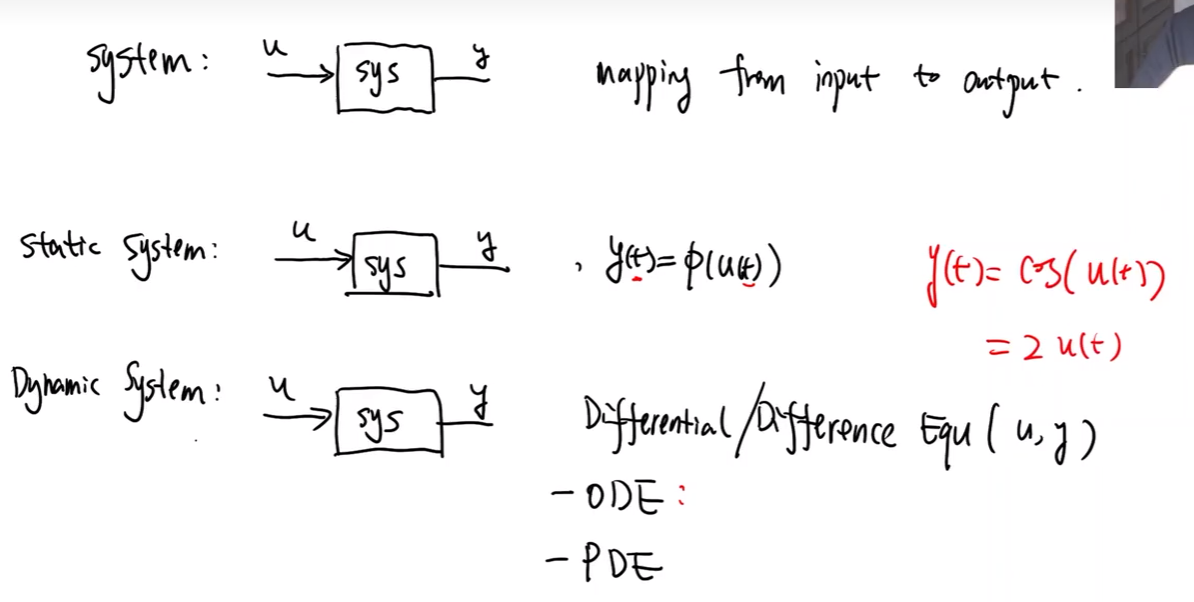 system: u sys y mapping from input to output.
Static System: u sys y , y(t)=ϕ(u(t)) y(t)= cos(u(t))
= 2 u(t)
Dynamic System: u sys y Differential/Difference Equ(u,y)
- ODE:
- PDE